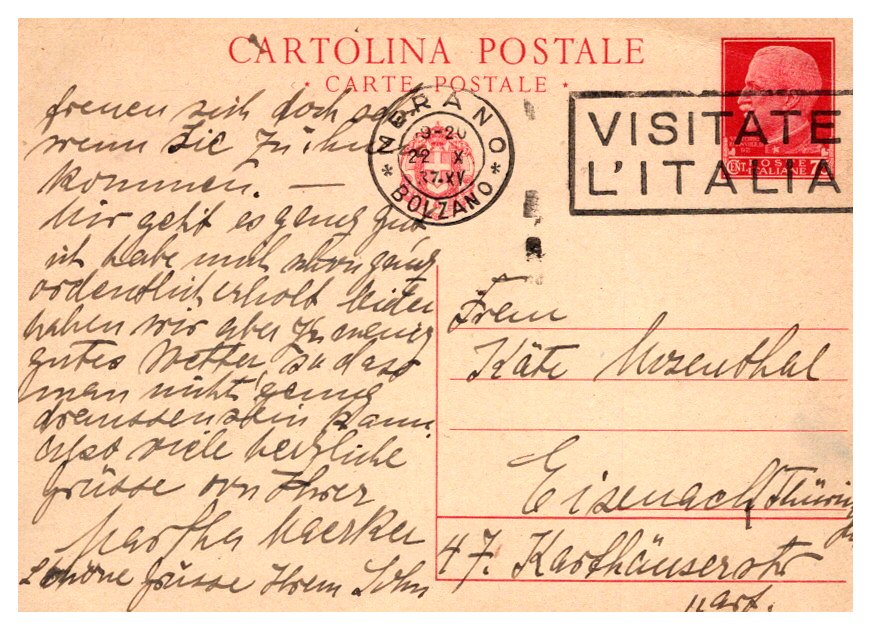 CARTOLINA POSTALE
* CARTE POSTALE *
MERANO
22 X
37.XV
* BOLZANO *
VISITATE
L'ITALIA
POSTE
CENT. 75
ITALIANE
freuen sich doch sehr
wenn Sie zu ihnen
kommen. —
Mir geht es ganz gut
ich habe mich schon ganz
ordentlich erholt leider
haben wir aber zu wenig
gutes Wetter, so dass
man nicht genug
draussen sein kann.
Also viele herzliche
Grüsse von Ihrer
Martha Maerker
Schöne Grüsse Ihrem Sohn
Frau
Käte Mosenthal
Eisenach Thürin
47. Karthäuserstr
part.